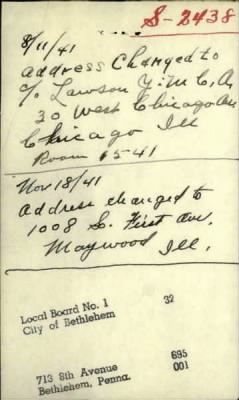 S-2438
8/11/41
address changed to
c/o Lawson Y.M.C.A.
30 West Chicago Ave
Chicago Ill
Room 1541
Nov 18/41
Address changed to
1008 So. First Ave,
Maywood Ill.
Local Board No. 1 32
City of Bethlehem
713 8th Avenue 695
Bethlehem, Penna. 001